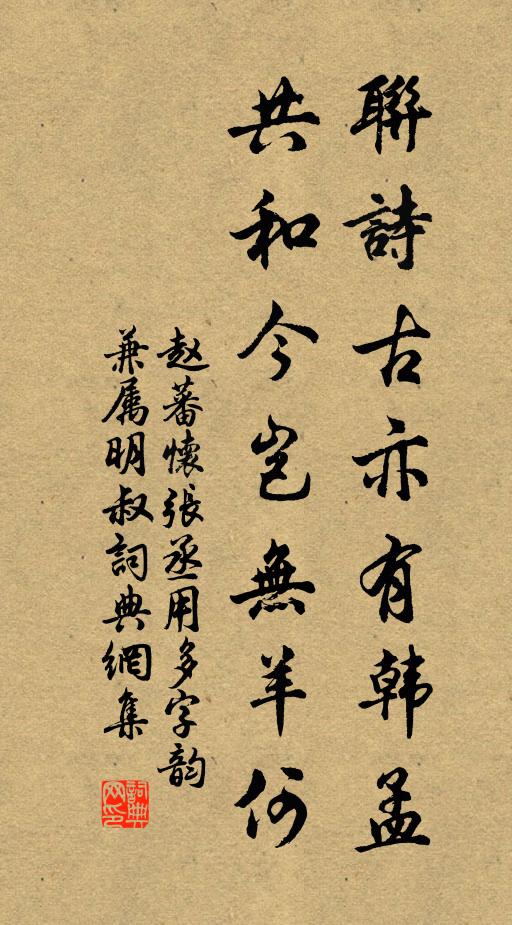 聯詩古亦有韩孟
共和今岂無羊何
赵蕃懷張丞用多字韵
兼属明叔詞典網集
詞典网印